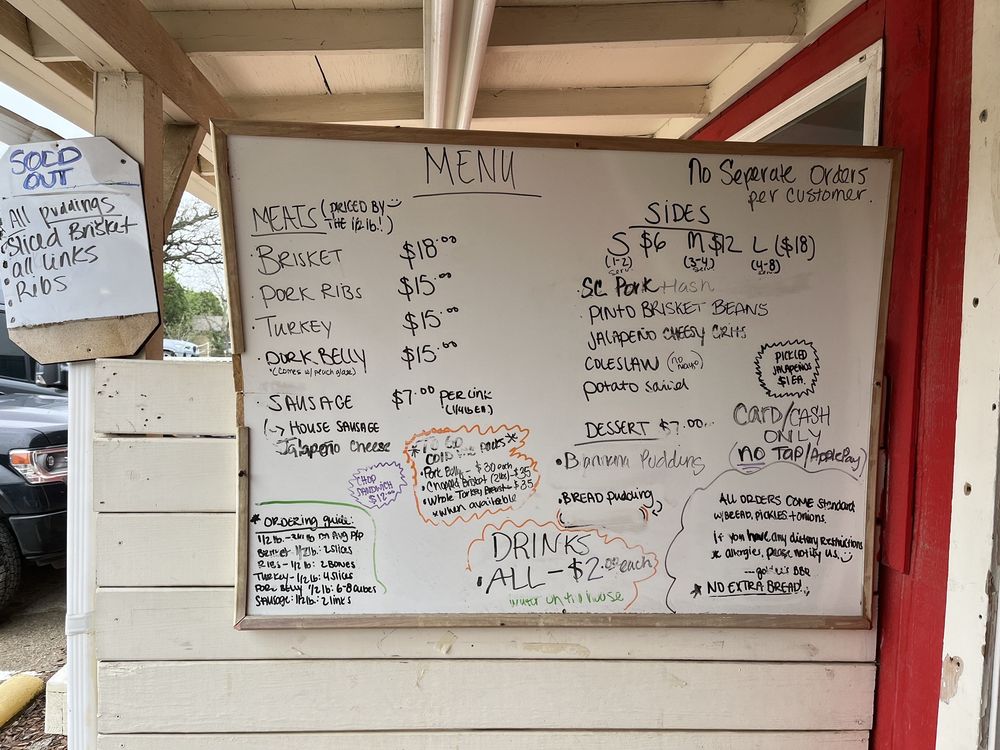 SOLD
OUT
• All puddings
• Sliced Brisket
• all links
• Ribs
MENU
No Separate Orders
per customer.
MEATS (PRICED BY
THE 1/2 lb.!)
• BRISKET $18.00
• PORK RIBS $15.00
• TURKEY $15.00
• PORK BELLY $15.00
*(comes w/ peach glaze)
• SAUSAGE $7.00 PER LINK
(1/4 lb EA)
↳ HOUSE SAUSAGE
Jalapeño Cheese
CHOP
SANDWICH
$12.00
* TO GO *
COLD Packs
• Pork Belly - $30 each
• Chopped Brisket (2lbs) - $35
• Whole Turkey Breast - $35
*when available
* ORDERING guide:
1/2 lb. - on Avg P/P
Brisket 1/2 lb: 2 slices
RIBS - 1/2 lb: 2 BONES
TURKEY - 1/2 lb: 4 slices
PORK BELLY 1/2 lb: 6-8 cubes
SAUSAGE: 1/2 lb: 2 links
SIDES
S $6 M $12 L ($18)
(1-2) (3-4) (6-8)
serv. serv. serv.
• SC Pork Hash
• PINTO BRISKET BEANS
JALAPEÑO CHEESY GRITS
COLESLAW (no mayo)
potato salad
PICKLED
JALAPEÑOS
$1 EA.
DESSERT $7.00
• Bannana Pudding
• BREAD pudding
CARD/CASH
ONLY
(no TAP/ApplePay)
DRINKS
• ALL - $2.00 each
water on the house
ALL ORDERS COME standard
w/ BREAD, PICKLES + onions.
if you have any dietary restrictions
or allergies, please notify us
- goldee's BBQ
* NO EXTRA BREAD!